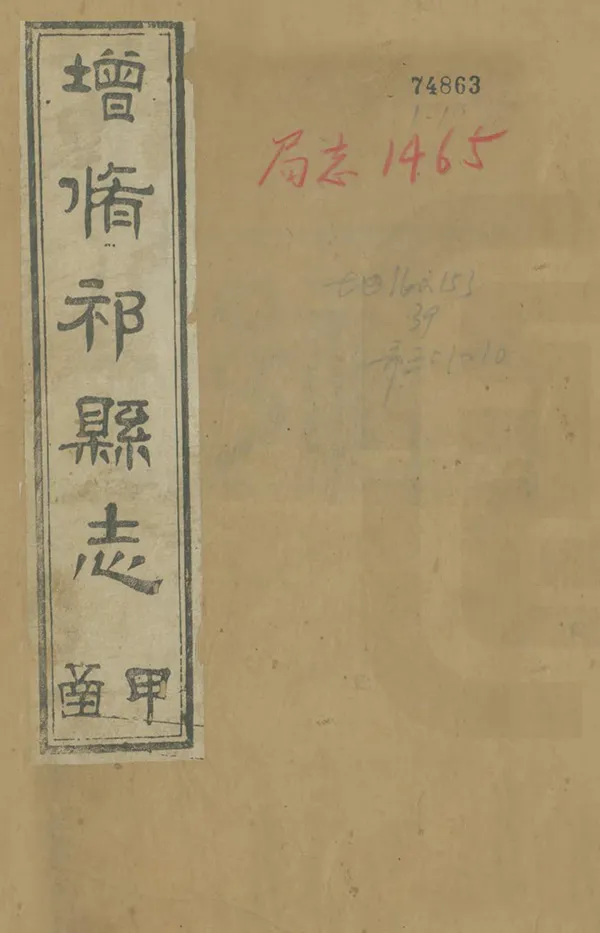 增脩祁縣志
甲函
74863
局志 1465
39